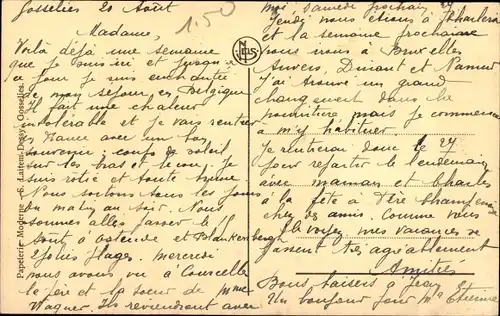 Gosselies 20 Août
1.50
Madame,
Voilà déjà une semaine
que je suis ici et jusqu'à
ce jour je suis enchantée
de mon séjour en Belgique
Il fait une chaleur
intolérable et je vais rentrer
en France avec un bon
souvenir, coups de soleil
sur les bras et le cou, je
suis rôtie et toute
Nous sortons tous les jours
du matin au soir. Nous
sommes allés passer le
15 août à Ostende et Blankenberghe
2 jolies plages. mercredi
nous avons vu à Courcelle
le père et la soeur de mme
Wagner. Ils reviendront avec
moi, samedi prochain 27
Jeudi nous étions à Charleroi
et la semaine prochaine
nous irons à Bruxelles
Anvers, Dinant et Namur
J'ai trouvé un grand
changement dans la
nourriture mais je commence
à m'y habituer
Je rentrerai donc le 27
pour repartir le lendemain
avec maman et Charles
à la fête à
chez des amis. Comme vous
le voyez mes vacances se
passent très agréablement
Amitiés
Bons baisers à Jean
Un bonjour pour Mr Etienne
Papeterie Moderne G. Laitem-Desoye Gosselies